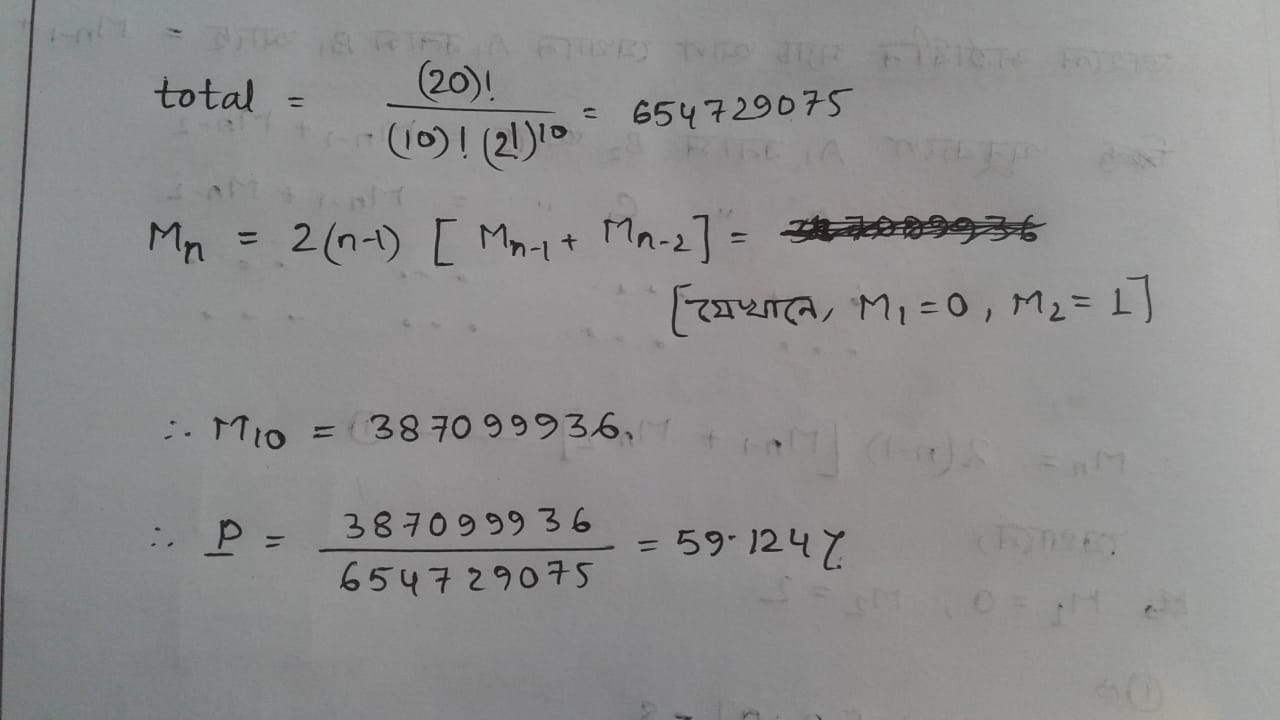 total = (20)! / (10)! (2!)^10 = 654729075
Mn = 2(n-1) [ Mn-1 + Mn-2 ] =
[যেখানে, M1 = 0, M2 = 1]
∴ M10 = 387099936.
∴ P = 387099936 / 654729075 = 59.124%